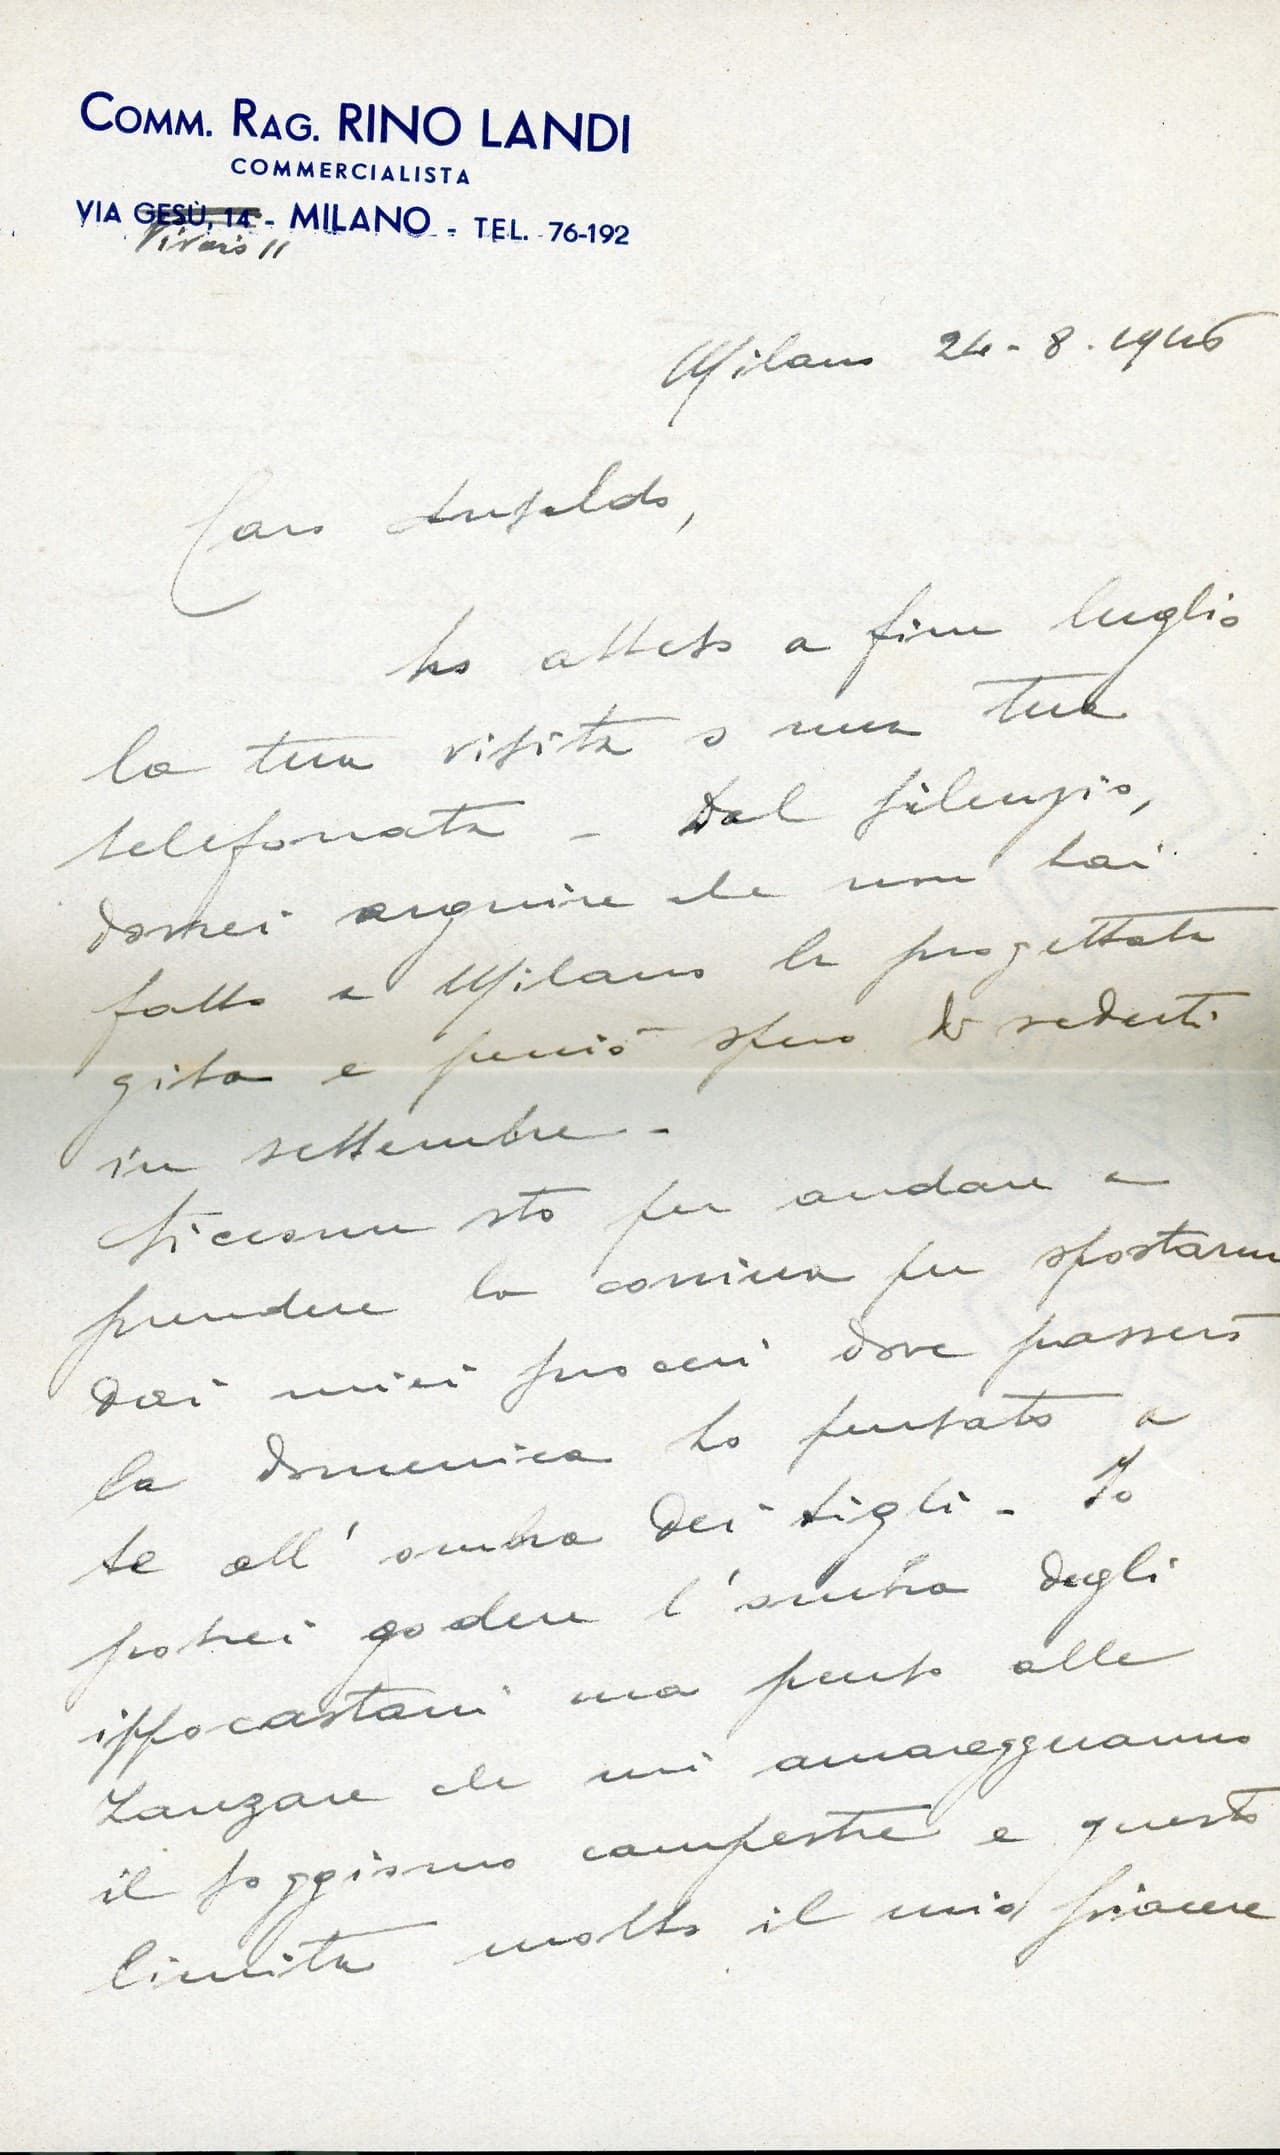 COMM. RAG. RINO LANDI
COMMERCIALISTA
VIA GESÙ, 14 - MILANO - TEL. 76-192
Vivaio 11
Milano 24-8-1946
Caro Ansaldo,
ho atteso a fine luglio
la tua visita o una tua
telefonata - Dal silenzio,
dovrei arguire che non hai
fatto a Milano la progettata
gita e perciò spero di vederti
in settembre -
Siccome sto per andare a
prendere la corriera per spostarmi
dai miei suoceri dove passerò
la domenica ho pensato a
te all'ombra dei tigli - Io
potrei godere l'ombra degli
ippocastani ma penso alle
zanzare che mi amareggiano
il soggiorno campestre e questo
limita molto il mio piacere